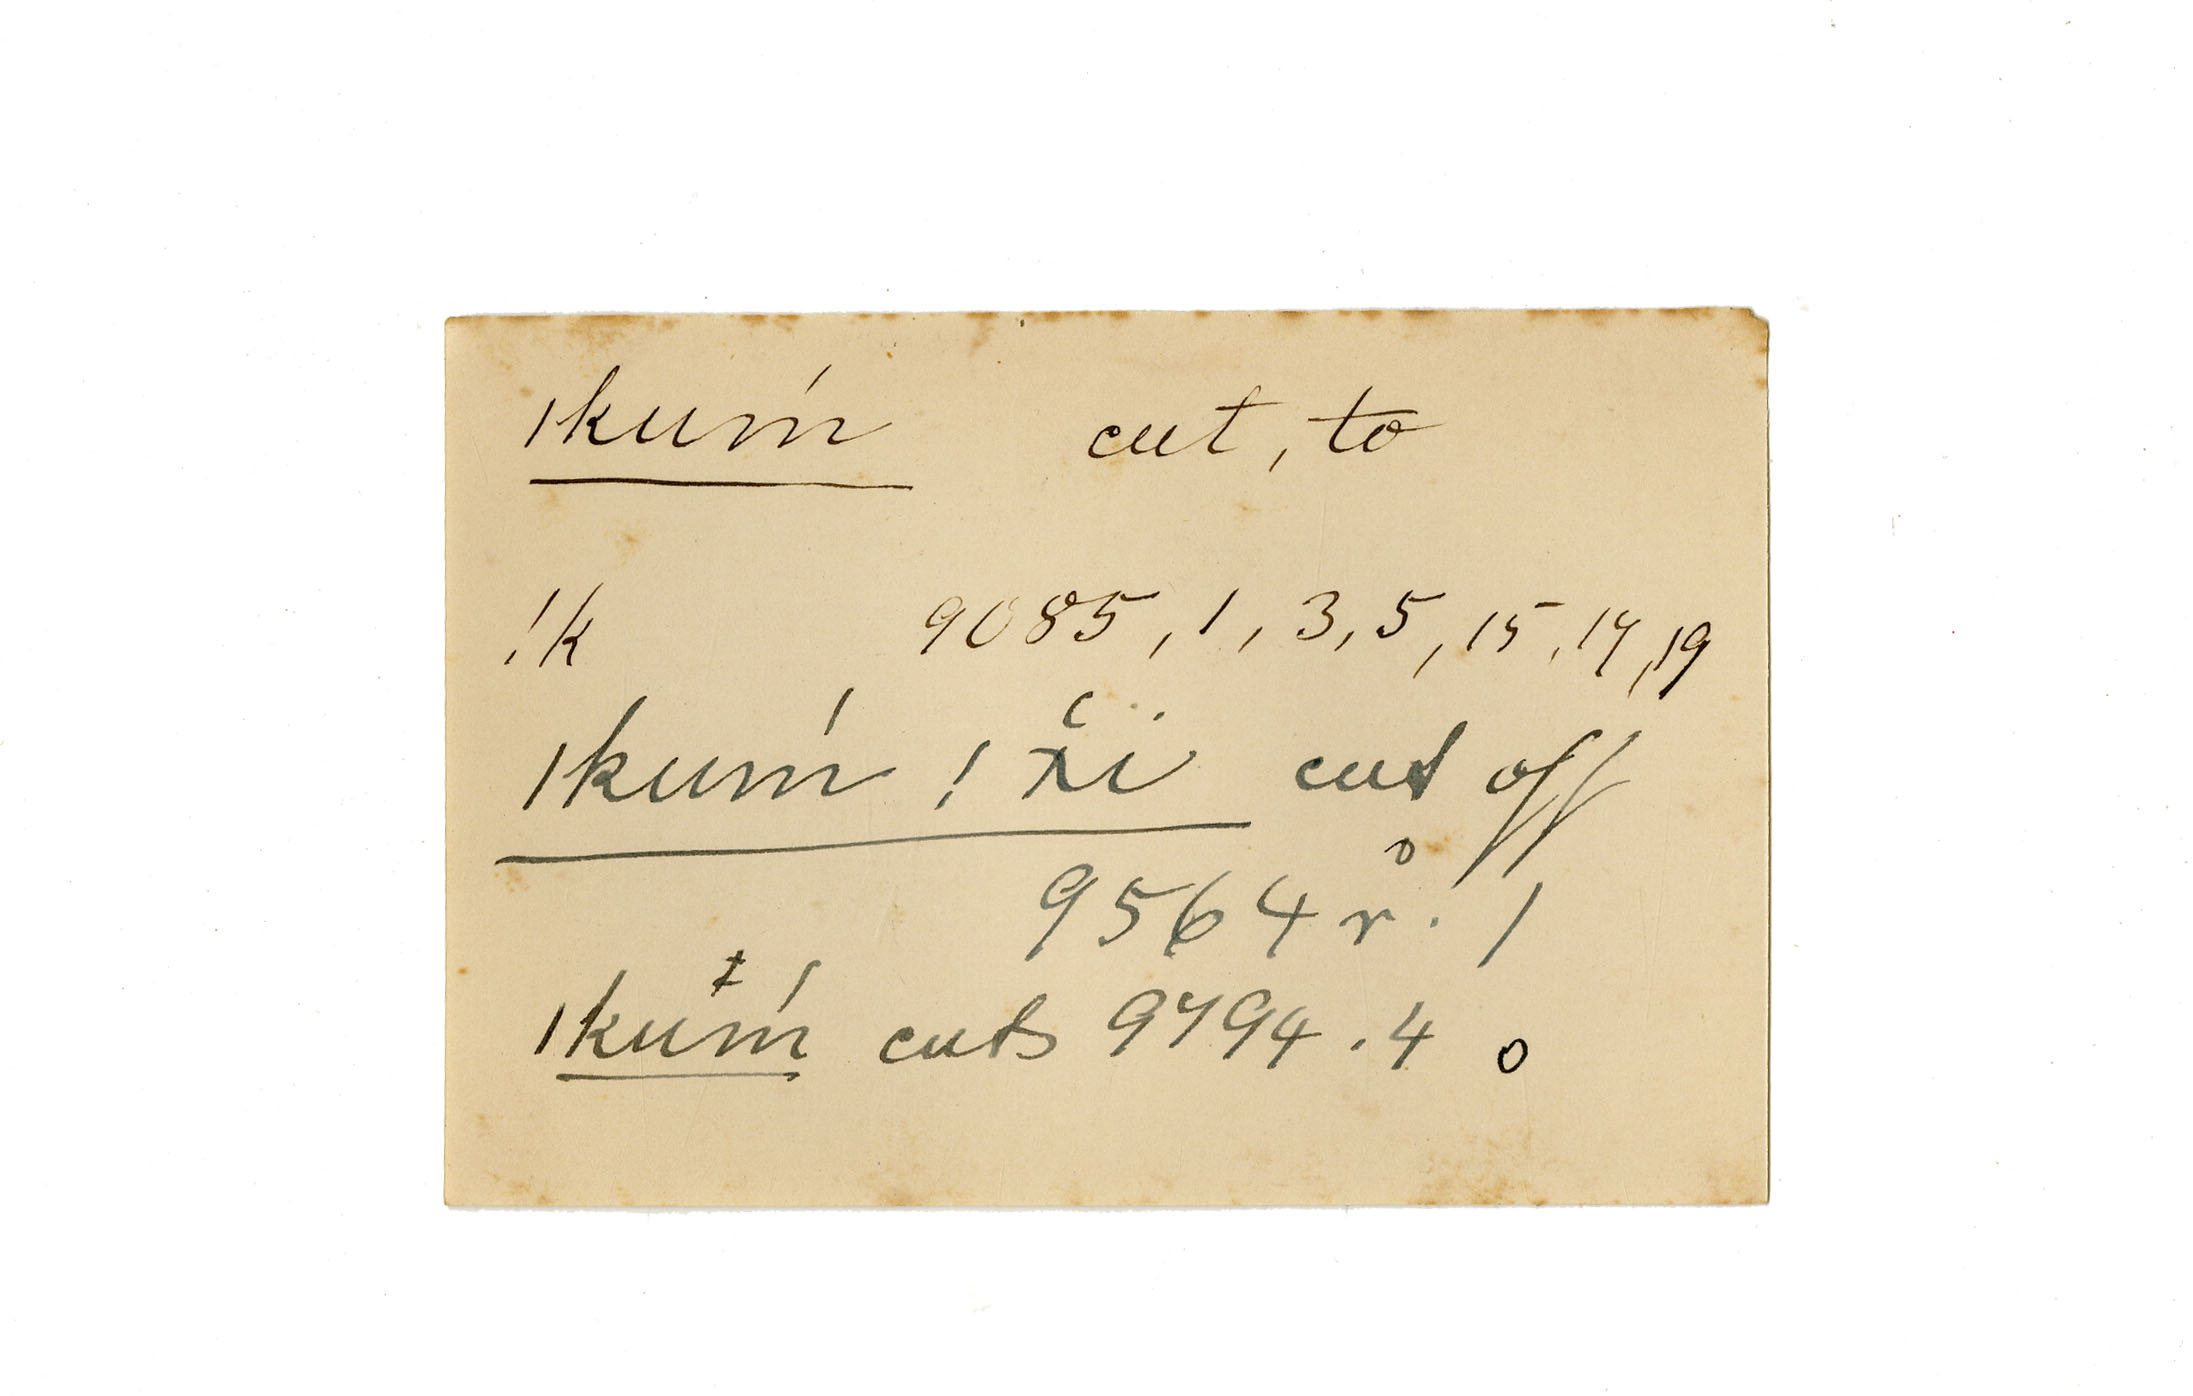 |kuḿ cut, to
!k 9085, 1, 3, 5, 15, 17, 19
|kuḿ !x̆ï cut off
9564 r̊. 1
|kuḿ cuts 9794.4 o